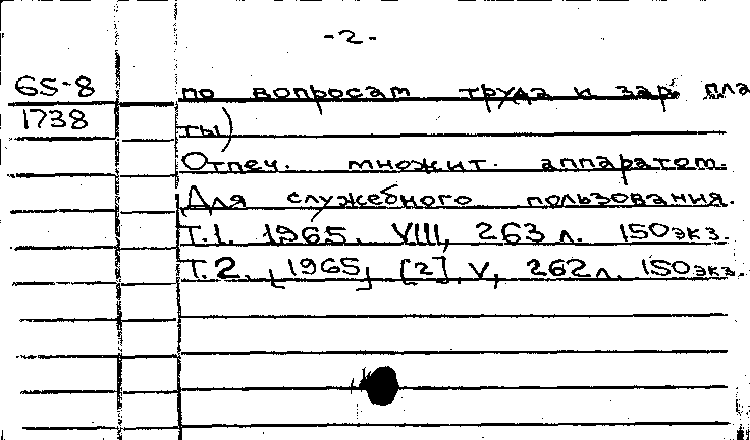 -2-
65-8
1738
по вопросам труда и зар пла
ты)
Отпеч. множит. аппаратом.
Для служебного пользования.
Т.1. 1965. VIII, 263 л. 150 экз.
Т.2. [1965] [2], V, 262 л. 150 экз.